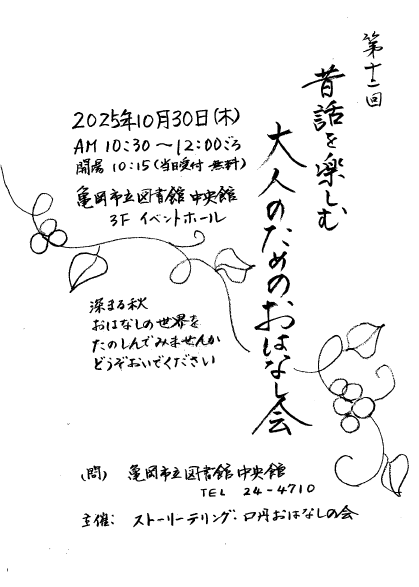 第十二回
昔話を楽しむ
大人のためのおはなし会
2025年10月30日(木)
AM 10:30～12:00ごろ
開場 10:15(当日受付 無料)
亀岡市立図書館 中央館
3F イベントホール
深まる秋
おはなしの世界を
たのしんでみませんか
どうぞおいでください
(問) 亀岡市立図書館 中央館
TEL 24-4710
主催: ストーリーテリング・口丹おはなしの会